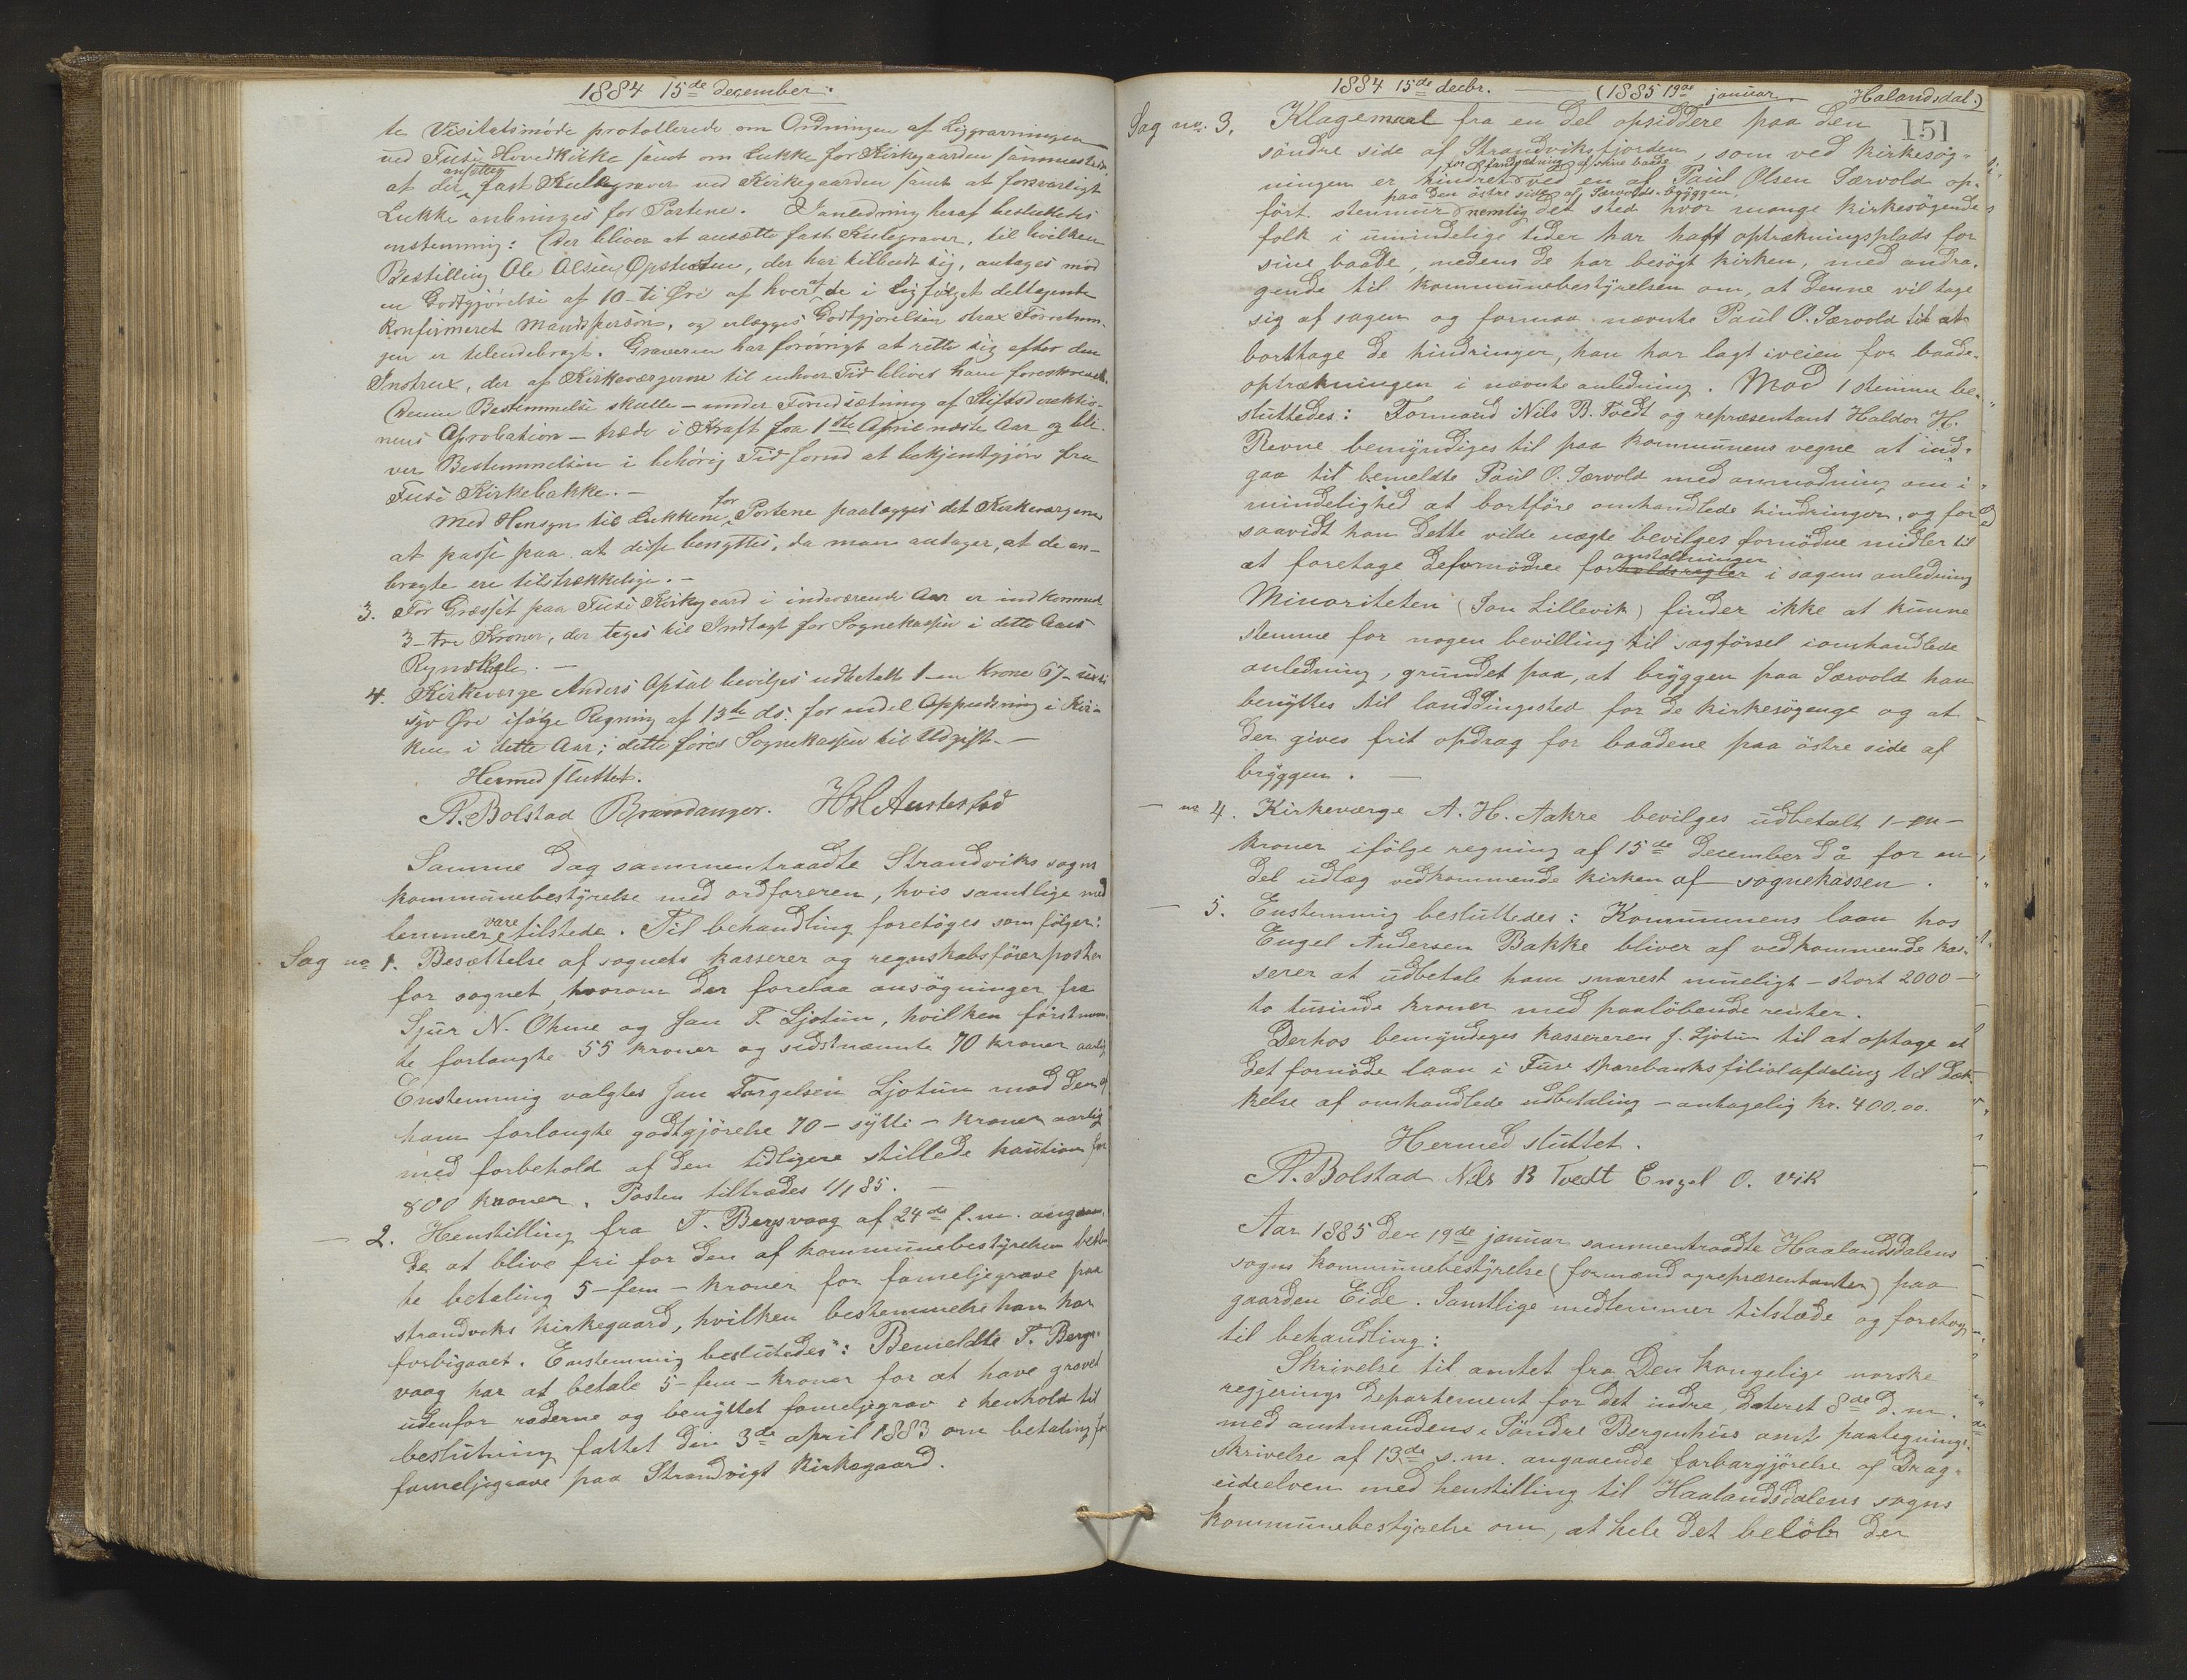 1884 15de december.
te Visitatsmøde protollerede om Ordningen af Liggravningen
ved Fuse Hovedkirke samt om Lukke for Kirkegaarden sammesteds,
at der ansættes fast Kulegraver ved Kirkegaarden samt at forsvarligt
Lukke anbringes for Portene. I Anledning heraf besluttedes
enstemmig: Der bliver at ansætte fast Kulegraver, til hvilken
Bestilling Ole Olsen Opstuten, der har tilbudt sig, antages mod
en Godtgjørelse af 10 - ti Øre af hver af de i Ligfølget deltagende
Konfirmeret Mandsperson, og erlægges Godtgjørelsen strax Forretnin-
gen er tilendebragt. Graveren har forøvrigt at rette sig efter den
Instrux, der af Kirkeværgerne til enhver Tid bliver ham foreskrevet.
Denne Bestemmelse skulle - under Forudsætning af Stiftsdirektio-
nens Aprobation - træde i Kraft fra 1ste April næste Aar og bli-
ver Bestemmelsen i behørig Tid forud at bekjendtgjøre fra
Fuse Kirkebakke. -
Med Hensyn til Lukkene for Portene paalægges det Kirkeværgerne
at passe paa at disse benyttes, da man antager, at de an-
bragte ere tilstrækkelige. -
3. For Græsset paa Fuse Kirkegaard i indeværende Aar er indkommet
3 - tre Kroner, der tages til Indtægt for Sognekassen i dette Aars
Regnskab. -
4. Kirkeværge Anders Opsal bevilges udbetalt 1 - en Krone 67 - seksti
syv Øre ifølge Regning af 13de ds. for endel Oppudsning i Kir-
ken i dette Aar; dette føres Sognekassen til Udgift. -
Hermed sluttet.
A. Bolstad Brandanger. H H Austestad
Samme dag sammentraadte Strandviks sogns
kommunebestyrelse med ordføreren, hvis samtlige med
lemmer vare tilstede. Til behandling foretoges som følger:
Sag no 1. Besættelse af sognets kasserer og regnskabsførerposten
for sognet, hvorom der forelaa ansøgninger fra
Sjur N. Ohme og Jan T. Ljotun, hvilken førstnævn-
te forlangte 55 kroner og sidstnævnte 70 kroner aarlig
Enstemmig valgtes Jan Torgelsen Ljotun mod den af
ham forlangte godtgjørelse 70 - sytti - kroner aarlig
med forbehold af den tidligere stillede kaution for
800 kroner. Posten tiltrædes 1/1 85. -
- 2. Henstilling fra T. Bergsvaag af 24de f.m. angaaen-
de at blive fri for den af kommunebestyrelsen bestem
te betaling 5 - fem - kroner for fameljegrave paa
strandviks kirkegaard, hvilken bestemmelse han har
forbigaaet. Enstemmig beslutedes: Bemeldte T. Bergs-
vaag har at betale 5 - fem - kroner for at have gravet
udenfor raderne og benyttet fameljegrav i henhold til
beslutning fattet den 3de april 1883 om betaling for
fameljegrave paa Strandvigt kirkegaard.
1884 15de decbr. - (1885 19de januar - Halandsdal.)
151
Sag no. 3. Klagemaal fra en del opsiddere paa den
søndre side af Strandviksfjorden, som ved kirkesøg-
for landsætning af sine baade
ningen er hindret ved en af Paul Olsen Særvold op-
paa den østre side af Særvolds-bryggen
ført stenmur nemlig det sted hvor mange kirkesøgende
folk i umindelige tider har haft optrækningsplads for
sine baade, medens de har besøgt kirken, med andra-
gende til kommunebestyrelsen om, at denne vil tage
sig af sagen og formaa nævnte Paul O. Særvold til at
borttage de hindringer, han har lagt iveien for baade-
optrækningen i nævnte anledning. Mod 1 stemme be-
sluttedes: Formand Nils B. Tvedt og repræsentant Haldor H.
Revne bemyndiges til paa kommunens vegne at ind-
gaa til bemeldte Paul O. Særvold med anmodning om i
mindelighed at bortføre omhandlede hindringer, og for
saavidt han dette vilde nægte bevilges fornødne midler til
at foretage defornødne forholdsregler anstaltninger i sagens anledning
Minoriteten (Jon Lillevik) finder ikke at kunne
stemme for nogen bevilling til sagførsel i omhandlede
anledning, grundet paa, at bryggen paa Særvold kan
benyttes til landdingssted for de kirkesøgenge og at
der gives frit opdrag for baadene paa østre side af
bryggen. -
- no 4. Kirkeværge A. H. Aakre bevilges udbetalt 1 - en -
kroner ifølge regning af 15de december då for en
del udlæg vedkommende kirken af sognekassen.
- 5. Enstemmig besluttedes: Kommunens laan hos
Engel Andersen Bakke bliver af vedkommende kas-
serer at udbetale ham snarest mueligt - stort 2000 -
to tusinde kroner med paaløbende renter.
Derhos bemyndiges kassereren J. Ljotun til at optage et
det fornøde laan i Fuse Sparebanks filialafdeling til dæk-
kelse af omhandlede udbetaling - antagelig kr. 400.00.
Hermed sluttet.
A. Bolstad Nils B Tvedt Engel O. Vik
Aar 1885 den 19de januar sammentraadte Haalandsdalens
sogns kommunebestyrelse (formænd og repræsentanter) paa
gaarden Eide. Samtlige medlemmer tilstæde og foretoges
til behandling:
Skrivelse til amtet fra Den kongelige norske
regjerings departement for det indre, dateret 8de d.m.
med amtmandens i Søndre Bergenhus amt paategnings-
skrivelse af 13de s.m. angaaende farbargjørelse af Drag-
eideelven med henstilling til Haalandsdalens sogns
kommunebestyrelse om, at hele det beløb der